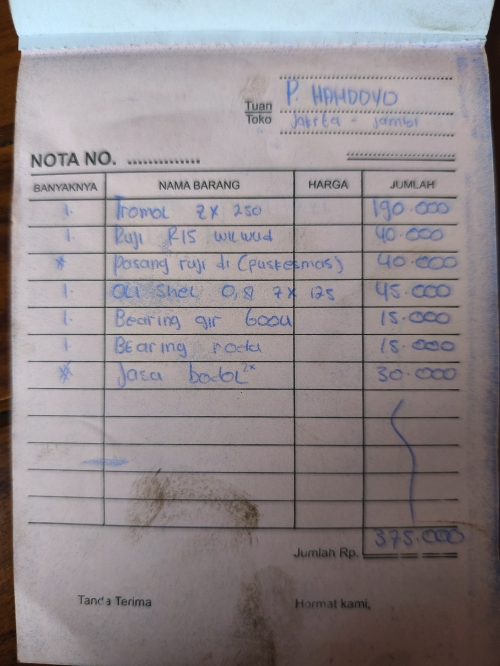 Tuan
Toko
P. HANDOYO
Jakrta - Jambi
NOTA NO. ................
BANYAKNYA NAMA BARANG HARGA JUMLAH
1. Tromol ZX 250 190.000
1. Ruji R15 wilwud 40.000
* pasang ruji di (puskesmas) 40.000
1. Oli Shel 0,8 7x 125 45.000
1. Bearing gir 6004 15.000
1. Bearing roda 15.000
* Jasa bodol 2x 30.000
Jumlah Rp. 375.000
Tanda Terima Hormat kami,